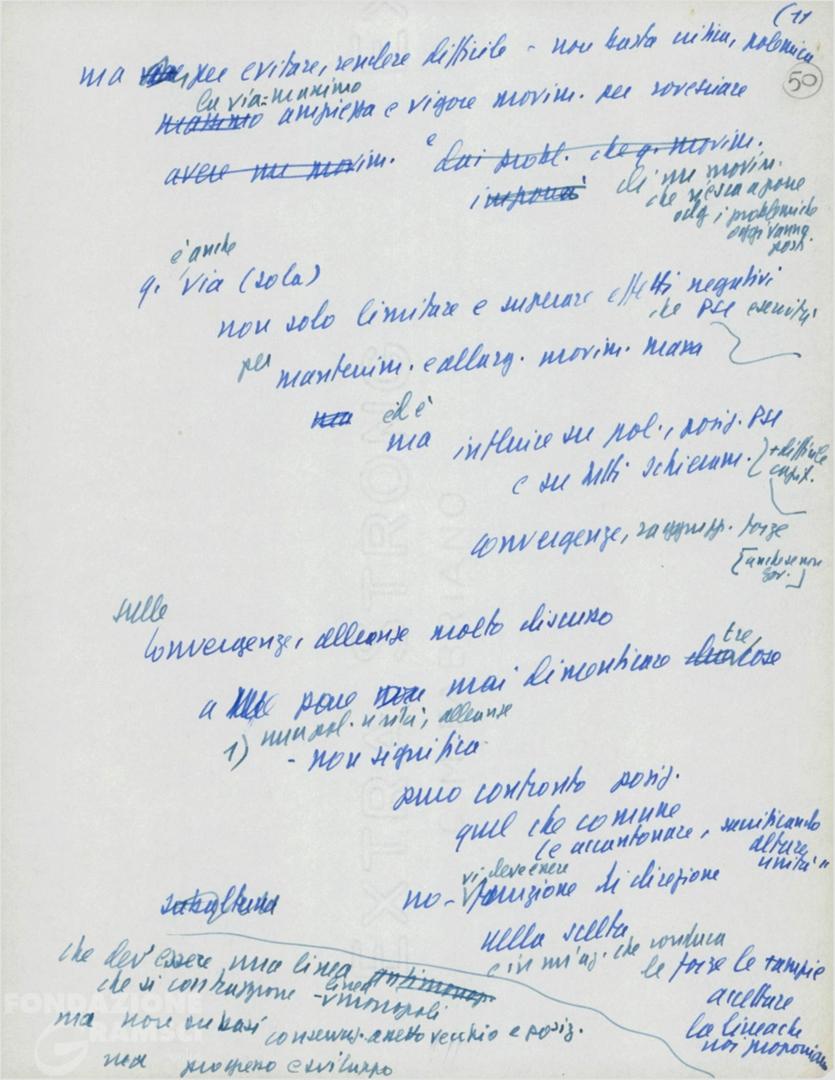 (11
50
ma per evitare, rendere difficile - non basta critica, polemica
la via = massimo
massimo ampiezza e vigore movim. per rovesciare
avere un movim. e dai probl. che q. movim.
imponeva di un movim.
che riesca a porre
oggi i problemi che
oggi vanno
posti
è anche
q. via (sola)
non solo limitare e superare effetti negativi
che PSI eserciti
per mantenim. e allarg. movim. massa
ma ed è
ma influire su pol., posiz. PSI
e su tutti schieram. + difficile
capit.
convergenze, raggrupp. forze
[anche se non
gov.]
sulle
convergenze, alleanze molto discusso
a me pare non mai dimenticare due tre cose
1) una pol. unità, alleanze
- non significa
puro confronto posiz.
quel che comune
(e accantonare, sacrificando
altare
unità"
vi deve essere
no - funzione di direzione
subalterna
nella scelta
e in un'az. che conduca
le forze le + ampie
accettare
la linea che
noi proponiamo
che dev'essere una linea antimonop.
che si contrappone - linea
monopoli
ma non su basi conservaz. assetto vecchio e posiz.
ma progresso e sviluppo
EXTRA STRONG
FABRIANO
FONDAZIONE
GRAMSCI